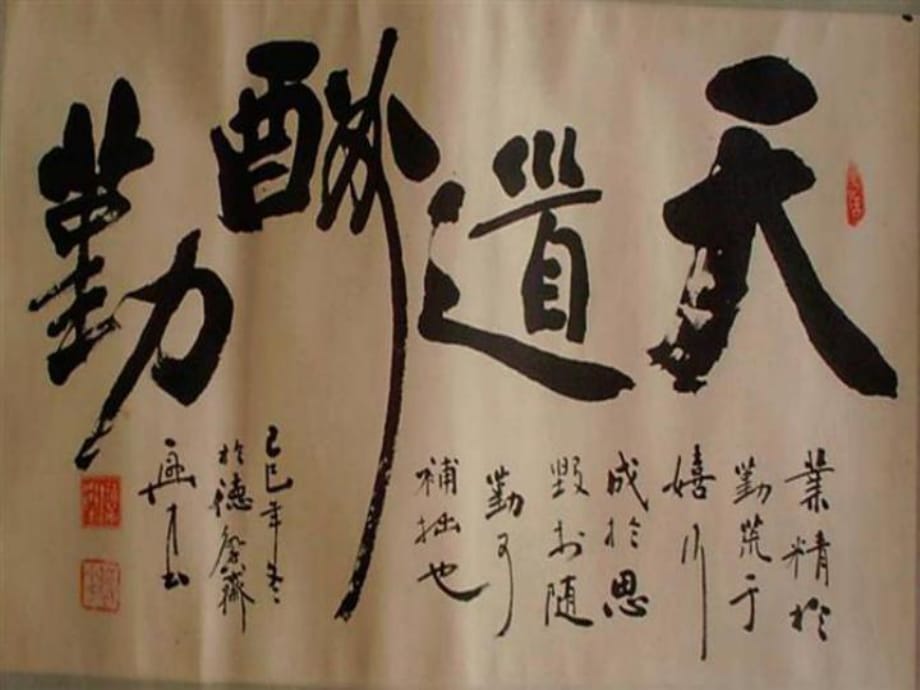 天道酬勤
業精於
勤荒于
嬉行
成於思
毀於随
勤可
補拙也
己巳年冬
於德馨齋